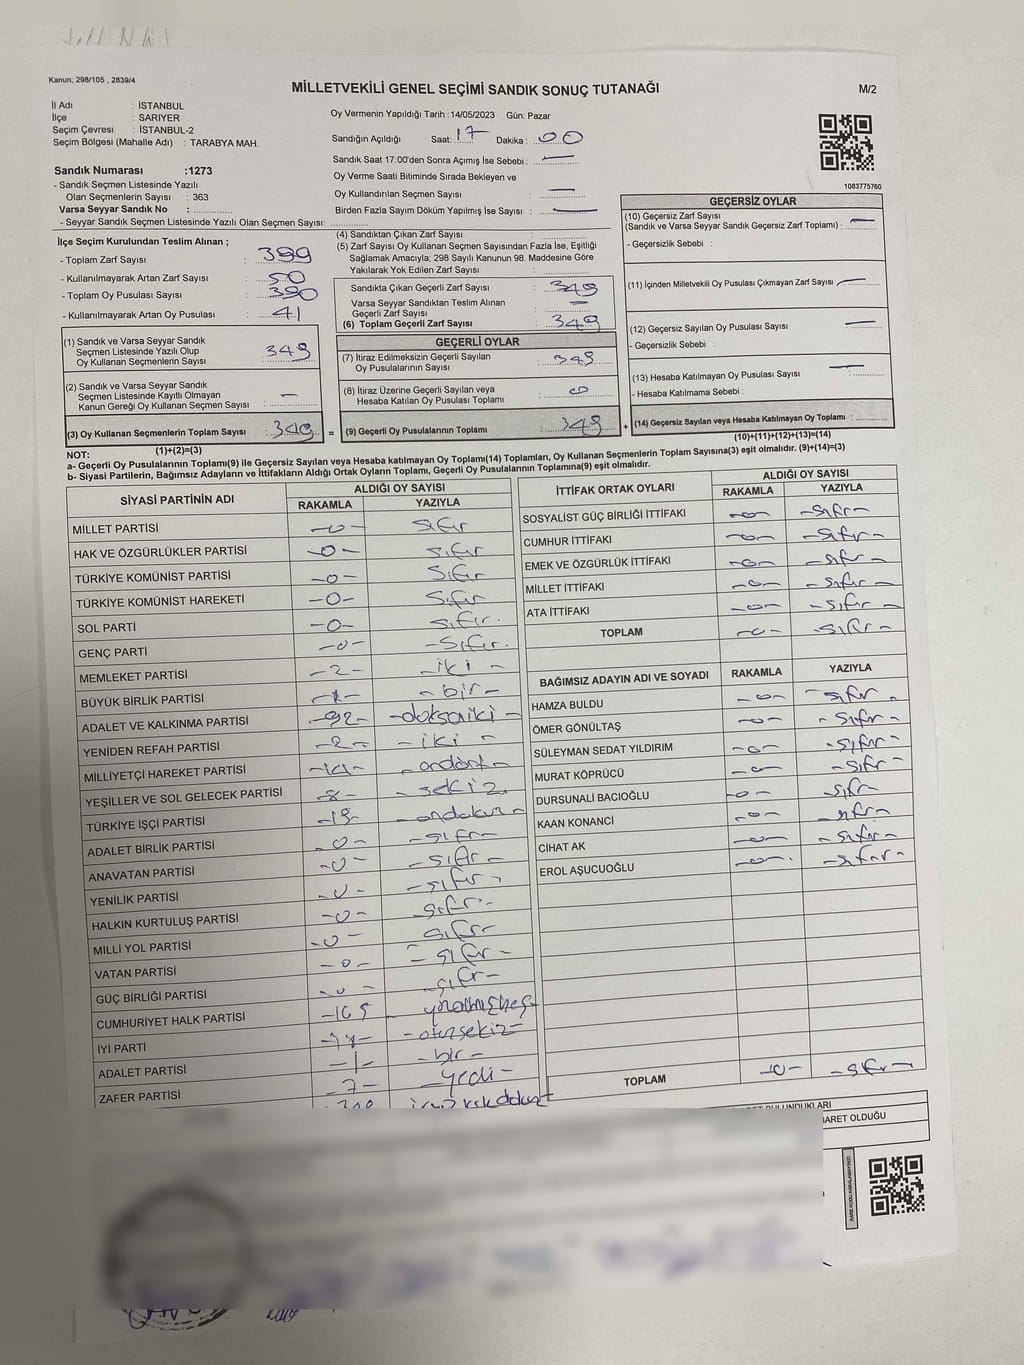 Kanun; 298/105 , 2839/4
MİLLETVEKİLİ GENEL SEÇİMİ SANDIK SONUÇ TUTANAĞI
M/2
İl Adı : İSTANBUL
İlçe : SARIYER
Seçim Çevresi : İSTANBUL-2
Seçim Bölgesi (Mahalle Adı) : TARABYA MAH.
Sandık Numarası :1273
- Sandık Seçmen Listesinde Yazılı
Olan Seçmenlerin Sayısı : 363
Varsa Seyyar Sandık No :
- Seyyar Sandık Seçmen Listesinde Yazılı Olan Seçmen Sayısı:
Oy Vermenin Yapıldığı Tarih :14/05/2023 Gün: Pazar
Sandığın Açıldığı Saat: 17 Dakika : 00
Sandık Saat 17:00'den Sonra Açılmış İse Sebebi : —
Oy Verme Saati Bitiminde Sırada Bekleyen ve
Oy Kullandırılan Seçmen Sayısı : —
Birden Fazla Sayım Döküm Yapılmış İse Sayısı : —
1083775760
İlçe Seçim Kurulundan Teslim Alınan ;
- Toplam Zarf Sayısı : 399
- Kullanılmayarak Artan Zarf Sayısı : 50
- Toplam Oy Pusulası Sayısı : 390
- Kullanılmayarak Artan Oy Pusulası : 41
(1) Sandık ve Varsa Seyyar Sandık
Seçmen Listesinde Yazılı Olup
Oy Kullanan Seçmenlerin Sayısı : 349
(2) Sandık ve Varsa Seyyar Sandık
Seçmen Listesinde Kayıtlı Olmayan
Kanun Gereği Oy Kullanan Seçmen Sayısı : —
(3) Oy Kullanan Seçmenlerin Toplam Sayısı : 349
(1)+(2)=(3)
(4) Sandıktan Çıkan Zarf Sayısı :
(5) Zarf Sayısı Oy Kullanan Seçmen Sayısından Fazla İse, Eşitliği
Sağlamak Amacıyla; 298 Sayılı Kanunun 98. Maddesine Göre
Yakılarak Yok Edilen Zarf Sayısı :
Sandıkta Çıkan Geçerli Zarf Sayısı : 349
Varsa Seyyar Sandıktan Teslim Alınan
Geçerli Zarf Sayısı : —
(6) Toplam Geçerli Zarf Sayısı : 349
GEÇERLİ OYLAR
(7) İtiraz Edilmeksizin Geçerli Sayılan
Oy Pusulalarının Sayısı : 349
(8) İtiraz Üzerine Geçerli Sayılan veya
Hesaba Katılan Oy Pusulası Toplamı : 0
= (9) Geçerli Oy Pusulalarının Toplamı : 349 +
GEÇERSİZ OYLAR
(10) Geçersiz Zarf Sayısı
(Sandık ve Varsa Seyyar Sandık Geçersiz Zarf Toplamı) : —
- Geçersizlik Sebebi :
(11) İçinden Milletvekili Oy Pusulası Çıkmayan Zarf Sayısı : —
(12) Geçersiz Sayılan Oy Pusulası Sayısı : —
- Geçersizlik Sebebi :
(13) Hesaba Katılmayan Oy Pusulası Sayısı : —
- Hesaba Katılmama Sebebi :
(14) Geçersiz Sayılan veya Hesaba Katılmayan Oy Toplamı :
(10)+(11)+(12)+(13)=(14)
NOT:
a- Geçerli Oy Pusulalarının Toplamı(9) ile Geçersiz Sayılan veya Hesaba Katılmayan Oy Toplamı(14) Toplamları, Oy Kullanan Seçmenlerin Toplam Sayısına(3) eşit olmalıdır. (9)+(14)=(3)
b- Siyasi Partilerin, Bağımsız Adayların ve İttifakların Aldığı Ortak Oyların Toplamı, Geçerli Oy Pusulalarının Toplamına(9) eşit olmalıdır.
SİYASİ PARTİNİN ADI
ALDIĞI OY SAYISI
RAKAMLA YAZIYLA
MİLLET PARTİSİ -0- sıfır
HAK VE ÖZGÜRLÜKLER PARTİSİ -0- sıfır
TÜRKİYE KOMÜNİST PARTİSİ -0- sıfır
TÜRKİYE KOMÜNİST HAREKETİ -0- sıfır
SOL PARTİ -0- sıfır.
GENÇ PARTİ -0- -sıfır.
MEMLEKET PARTİSİ -2- -iki-
BÜYÜK BİRLİK PARTİSİ -1- -bir-
ADALET VE KALKINMA PARTİSİ -92- -doksaniki-
YENİDEN REFAH PARTİSİ -2- -iki-
MİLLİYETÇİ HAREKET PARTİSİ -14- -ondört-
YEŞİLLER VE SOL GELECEK PARTİSİ -8- -sekiz
TÜRKİYE İŞÇİ PARTİSİ -19- -ondokuz-
ADALET BİRLİK PARTİSİ -0- -sıfır-
ANAVATAN PARTİSİ -0- -sıfır-
YENİLİK PARTİSİ -0- -sıfır-
HALKIN KURTULUŞ PARTİSİ -0- sıfır-
MİLLİ YOL PARTİSİ -0- sıfır-
VATAN PARTİSİ -0- -sıfır-
GÜÇ BİRLİĞİ PARTİSİ -0- -sıfır-
CUMHURİYET HALK PARTİSİ -165 yüzaltmışbeş
İYİ PARTİ -otuzsekiz-
ADALET PARTİSİ -1- -bir-
ZAFER PARTİSİ -7- -yedi-
İTTİFAK ORTAK OYLARI
ALDIĞI OY SAYISI
RAKAMLA YAZIYLA
SOSYALİST GÜÇ BİRLİĞİ İTTİFAKI -0- -sıfır-
CUMHUR İTTİFAKI -0- -sıfır-
EMEK VE ÖZGÜRLÜK İTTİFAKI -0- -sıfır-
MİLLET İTTİFAKI -0- -sıfır-
ATA İTTİFAKI -0- -sıfır-
TOPLAM -0- -sıfır-
BAĞIMSIZ ADAYIN ADI VE SOYADI RAKAMLA YAZIYLA
HAMZA BULDU -0- -sıfır-
ÖMER GÖNÜLTAŞ -0- -sıfır-
SÜLEYMAN SEDAT YILDIRIM -0- -sıfır-
MURAT KÖPRÜCÜ -0- -sıfır-
DURSUNALİ BACIOĞLU -0- -sıfır-
KAAN KONANCİ -0- -sıfır-
CİHAT AK -0- -sıfır-
EROL AŞUCUOĞLU -0- -sıfır-
TOPLAM -0- -sıfır-